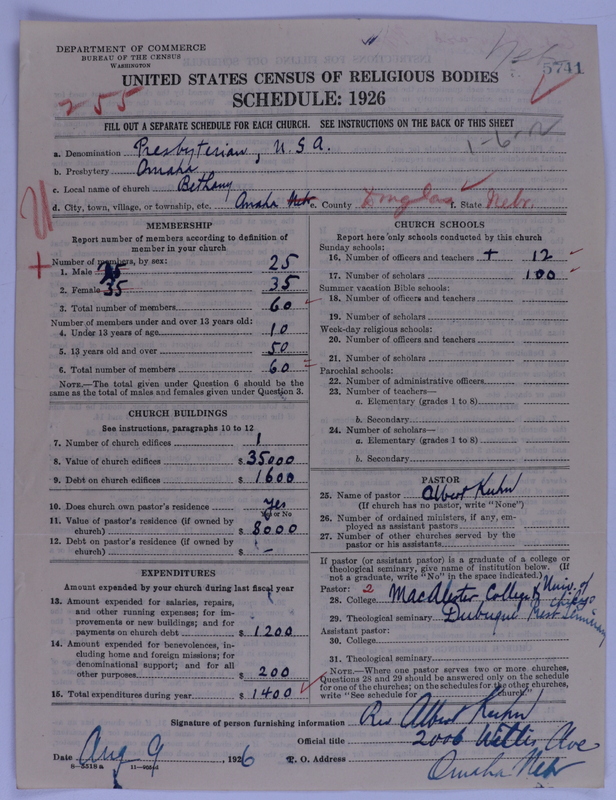 DEPARTMENT OF COMMERCE
BUREAU OF THE CENSUS
WASHINGTON
5741
UNITED STATES CENSUS OF RELIGIOUS BODIES
255
SCHEDULE: 1926
FILL OUT A SEPARATE SCHEDULE FOR EACH CHURCH. SEE INSTRUCTIONS ON THE BACK OF THIS SHEET
a. Denomination Presbyterian, U.S.A.
1-6-2
b. Presbytery Omaha
c. Local name of church Bethany
d. City, town, village, or township, etc. Omaha Nebr e. County Douglas f. State Nebr.
MEMBERSHIP
Report number of members according to definition of
member in your church
Number of members, by sex:
1. Male 25 25
2. Female 35 35
3. Total number of members 60
Number of members under and over 13 years old:
4. Under 13 years of age 10
5. 13 years old and over 50
6. Total number of members 60
NOTE.—The total given under Question 6 should be the
same as the total of males and females given under Question 3.
CHURCH BUILDINGS
See instructions, paragraphs 10 to 12
7. Number of church edifices 1
8. Value of church edifices $35000
9. Debt on church edifices $1600
10. Does church own pastor's residence yes
Yes or No
11. Value of pastor's residence (if owned by
church) $8000
12. Debt on pastor's residence (if owned by
church) $ —
EXPENDITURES
Amount expended by your church during last fiscal year
13. Amount expended for salaries, repairs,
and other running expenses; for im-
provements or new buildings; and for
payments on church debt $1200
14. Amount expended for benevolences, in-
cluding home and foreign missions; for
denominational support; and for all
other purposes $200
15. Total expenditures during year $1400
CHURCH SCHOOLS
Report here only schools conducted by this church
Sunday schools:
16. Number of officers and teachers + 12
17. Number of scholars 100
Summer vacation Bible schools:
18. Number of officers and teachers
19. Number of scholars
Week-day religious schools:
20. Number of officers and teachers
21. Number of scholars
Parochial schools:
22. Number of administrative officers
23. Number of teachers—
a. Elementary (grades 1 to 8)
b. Secondary
24. Number of scholars—
a. Elementary (grades 1 to 8)
b. Secondary
PASTOR
25. Name of pastor Albert Kuhn
(If church has no pastor, write "None")
26. Number of ordained ministers, if any, em-
ployed as assistant pastors
27. Number of other churches served by the
pastor or his assistants
If pastor (or assistant pastor) is a graduate of a college or
theological seminary, give name of institution below. (If
not a graduate, write "No" in the space indicated.)
Pastor: 2
28. College MacAlester College & Univ. of Chicago
29. Theological seminary Dubuque Pres. Seminary
Assistant pastor:
30. College
31. Theological seminary
NOTE.—Where one pastor serves two or more churches,
Questions 28 and 29 should be answered only on the schedule
for one of the churches; on the schedules for the other churches,
write "See schedule for church."
Signature of person furnishing information Rev Albert Kuhn
Official title 2006 Willis Ave
Date Aug 9, 1926 P. O. Address Omaha Nebr
8—5518 a